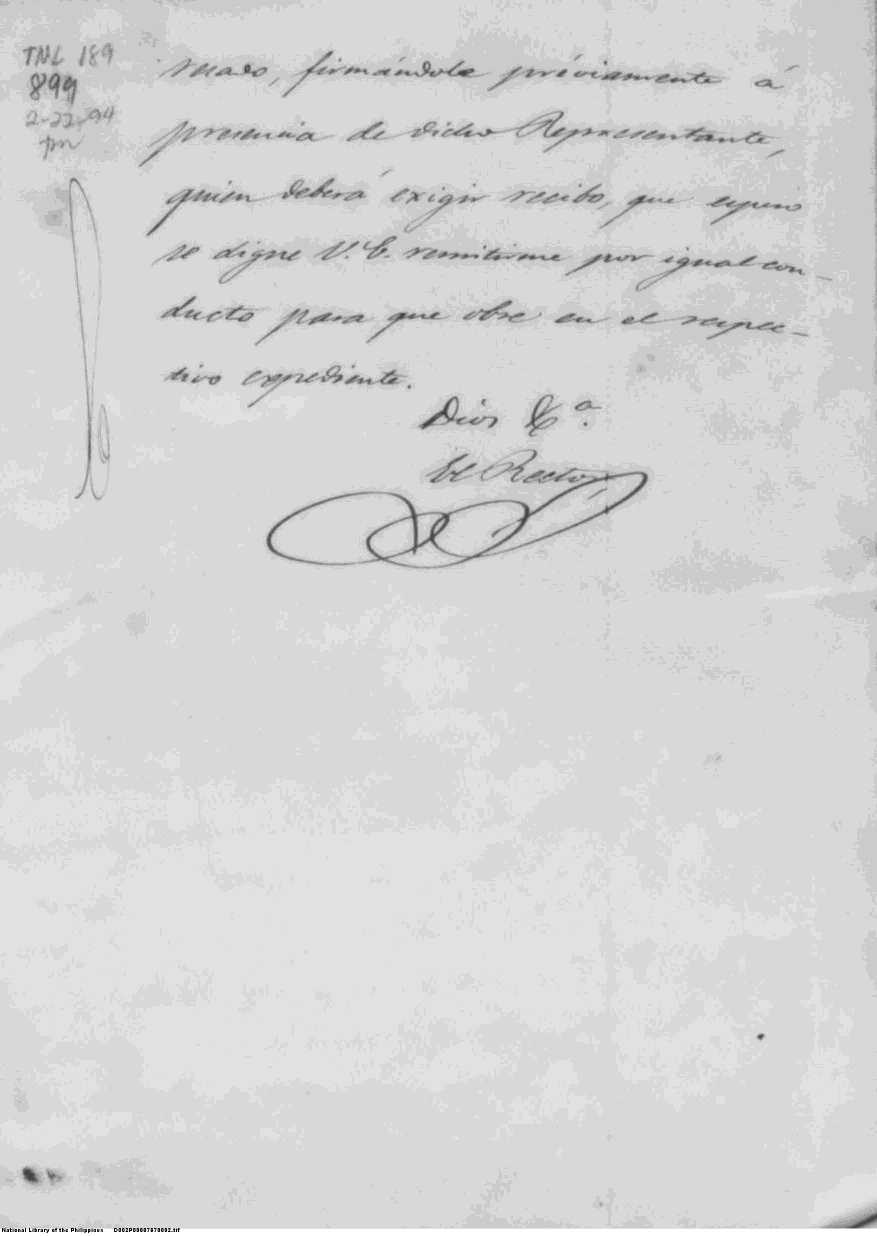 TNL 189
899
2-22-94
pm
resado, firmándola préviamente á
presencia de dicho Representante,
quien deberá exigir recibo, que espero
se digne V. E. remitirme por igual con-
ducto para que obre en el respec-
tivo expediente.
Dios &ª.
El Rector
National Library of the Philippines D002P00007870002.tif